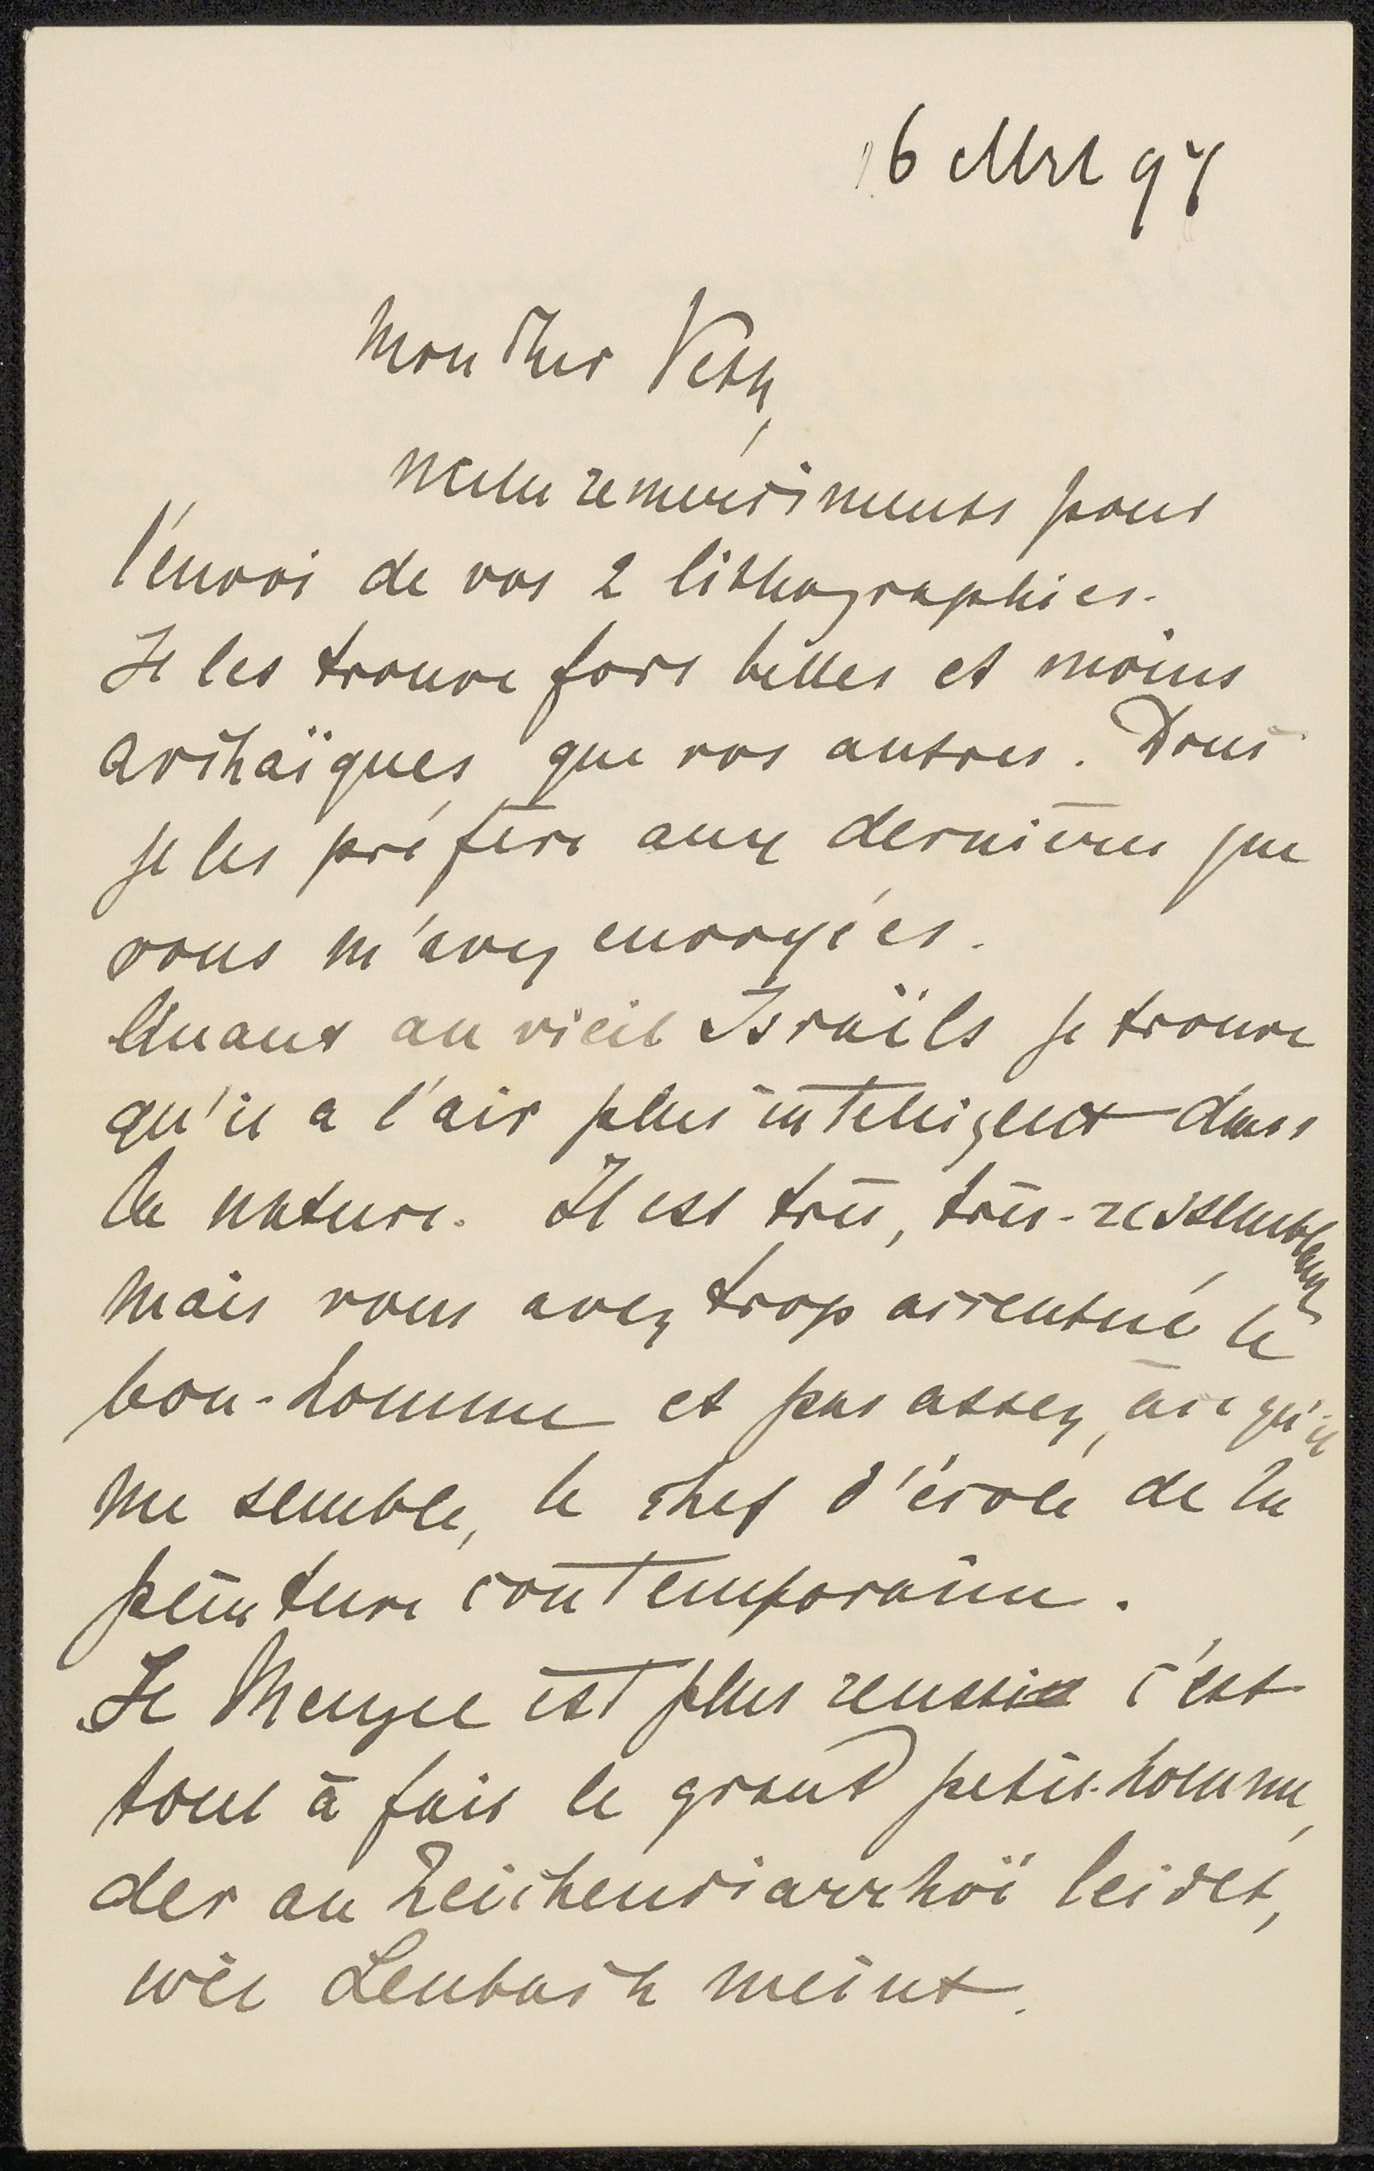 16 Mrz 97
Mon cher Veth,
mille remerciments pour
l'envoi de vos 2 lithographies.
Je les trouve fort belles et moins
archaïques que vos autres. Donc
je les préfère aux dernières que
vous m'avez envoyées.
Quant au vieil Israëls je trouve
qu'il a l'air plus intelligent dans
la nature. Il est très, très-ressemblant
mais vous avez trop accentué le
bon-homme et pas assez, à ce qu'il
me semble, le chef d'école de la
peinture contemporaine.
Le Menzel est plus reussi c'est
tout à fait le grand petit-homme,
der an Zeichendiarrhöe leidet,
wie Lenbach meint.